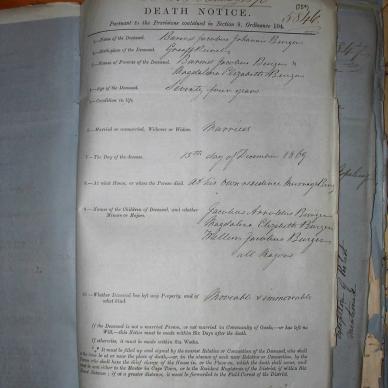 DEATH NOTICE.
Pursuant to the Provisions contained in Section 9, Ordinance 104.
1.—Name of the Deceased. Barend Jacobus Johannes Burger
2.—Birthplace of the Deceased. Graaff Reinet
3.—Names of Parents of the Deceased. Barend Jacobus Burger &
Magdalena Elizabeth Burger
4.—Age of the Deceased. Seventy four years
5.—Condition in life.
6.—Married or unmarried, Widower or Widow. Married
7.—The Day of the decease. 15th day of December 1869
8.—At what House, or where the Person died. At his own residence
9.—Names of the Children of Deceased, and whether
Minors or Majors.
Jacobus Arnoldus Burger
Magdalena Elizabeth Burger
Willem Jacobus Burger
all Majors
10.—Whether Deceased has left any Property, and of
what kind. Moveable & immoveable
If the Deceased is not a married Person, or not married in Community of Goods,—or has left no
Will,—this Notice must be made within Six Days after the death.
If otherwise, it must be made within Six Weeks.
It must be filled up and signed by the nearest Relative or Connection of the Deceased, who shall
at the time be at or near the place of death,—or, in the absence of such near Relative or Connection, by the
Person who shall have the chief charge of the House in, or the Place on, which the death shall occur, and
must be sent either to the Master in Cape Town, or to the Resident Magistrate of the District, if within Six
Hours' distance; if at a greater distance, it must be forwarded to the Field Cornet of the District.